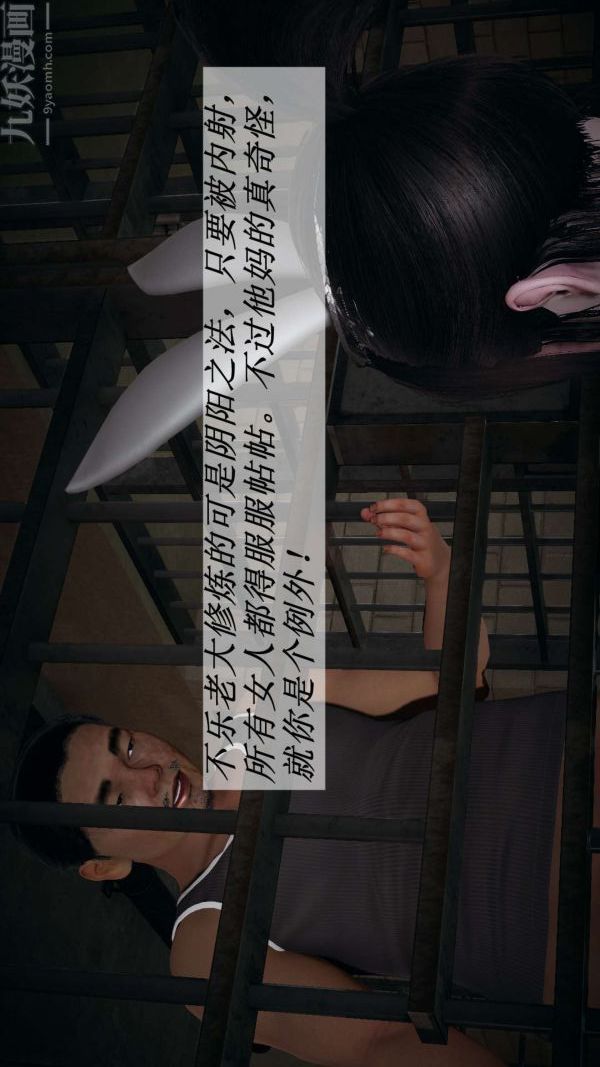 不乐老大修炼的可是阴阳之法，只要被内射，
所有女人都得服服帖帖。不过他妈的真奇怪，
就你是个例外！
九妖漫画
9yaomh.com